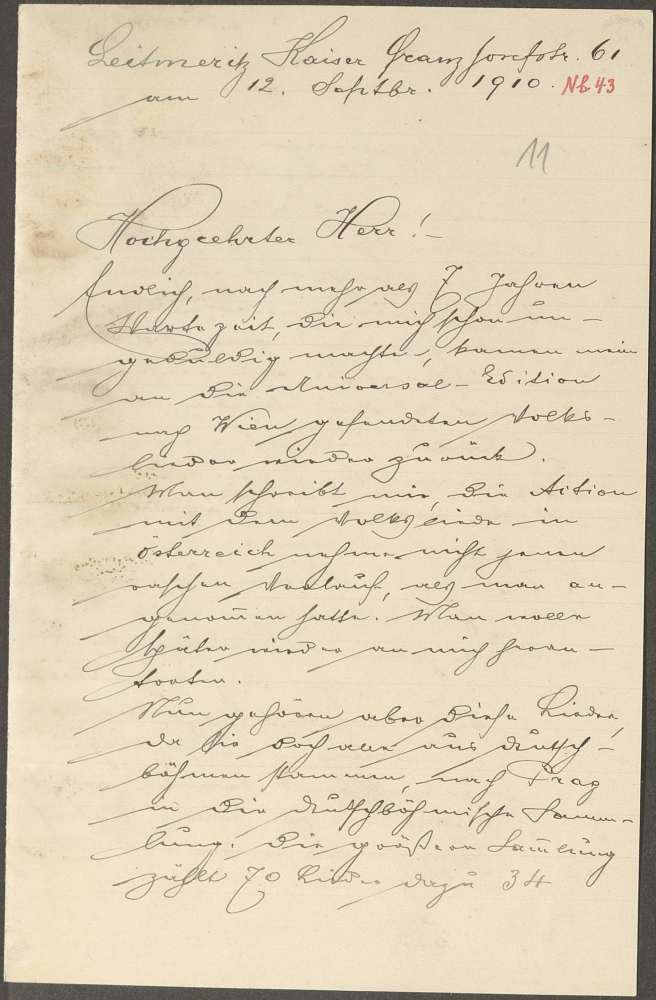 Leitmeritz Kaiser Franz Josefstr. 61
am 12. Septbr. 1910. Nb 43
11
Hochgeehrter Herr!–
Endlich, nach mehr als 7 Jahren
Wartezeit, die mich schon un-
geduldig machte, kamen meine
an die Universal-Edition
nach Wien gesendeten Volks-
lieder wieder zurück.
Man schreibt mir, die Aktion
mit dem Volksliede in
Österreich nehme nicht jenen
raschen Verlauf, als man an-
genom̅en hatte. Man wolle
später wieder an mich heran-
treten.
Nun gehören aber diese Lieder,
da sie doch alle aus Deutsch-
böhmen stammen, nach Prag
in die deutschböhmische Samm-
lung. Die größere Sam̅lung
zählt 70 Lieder dazu 34